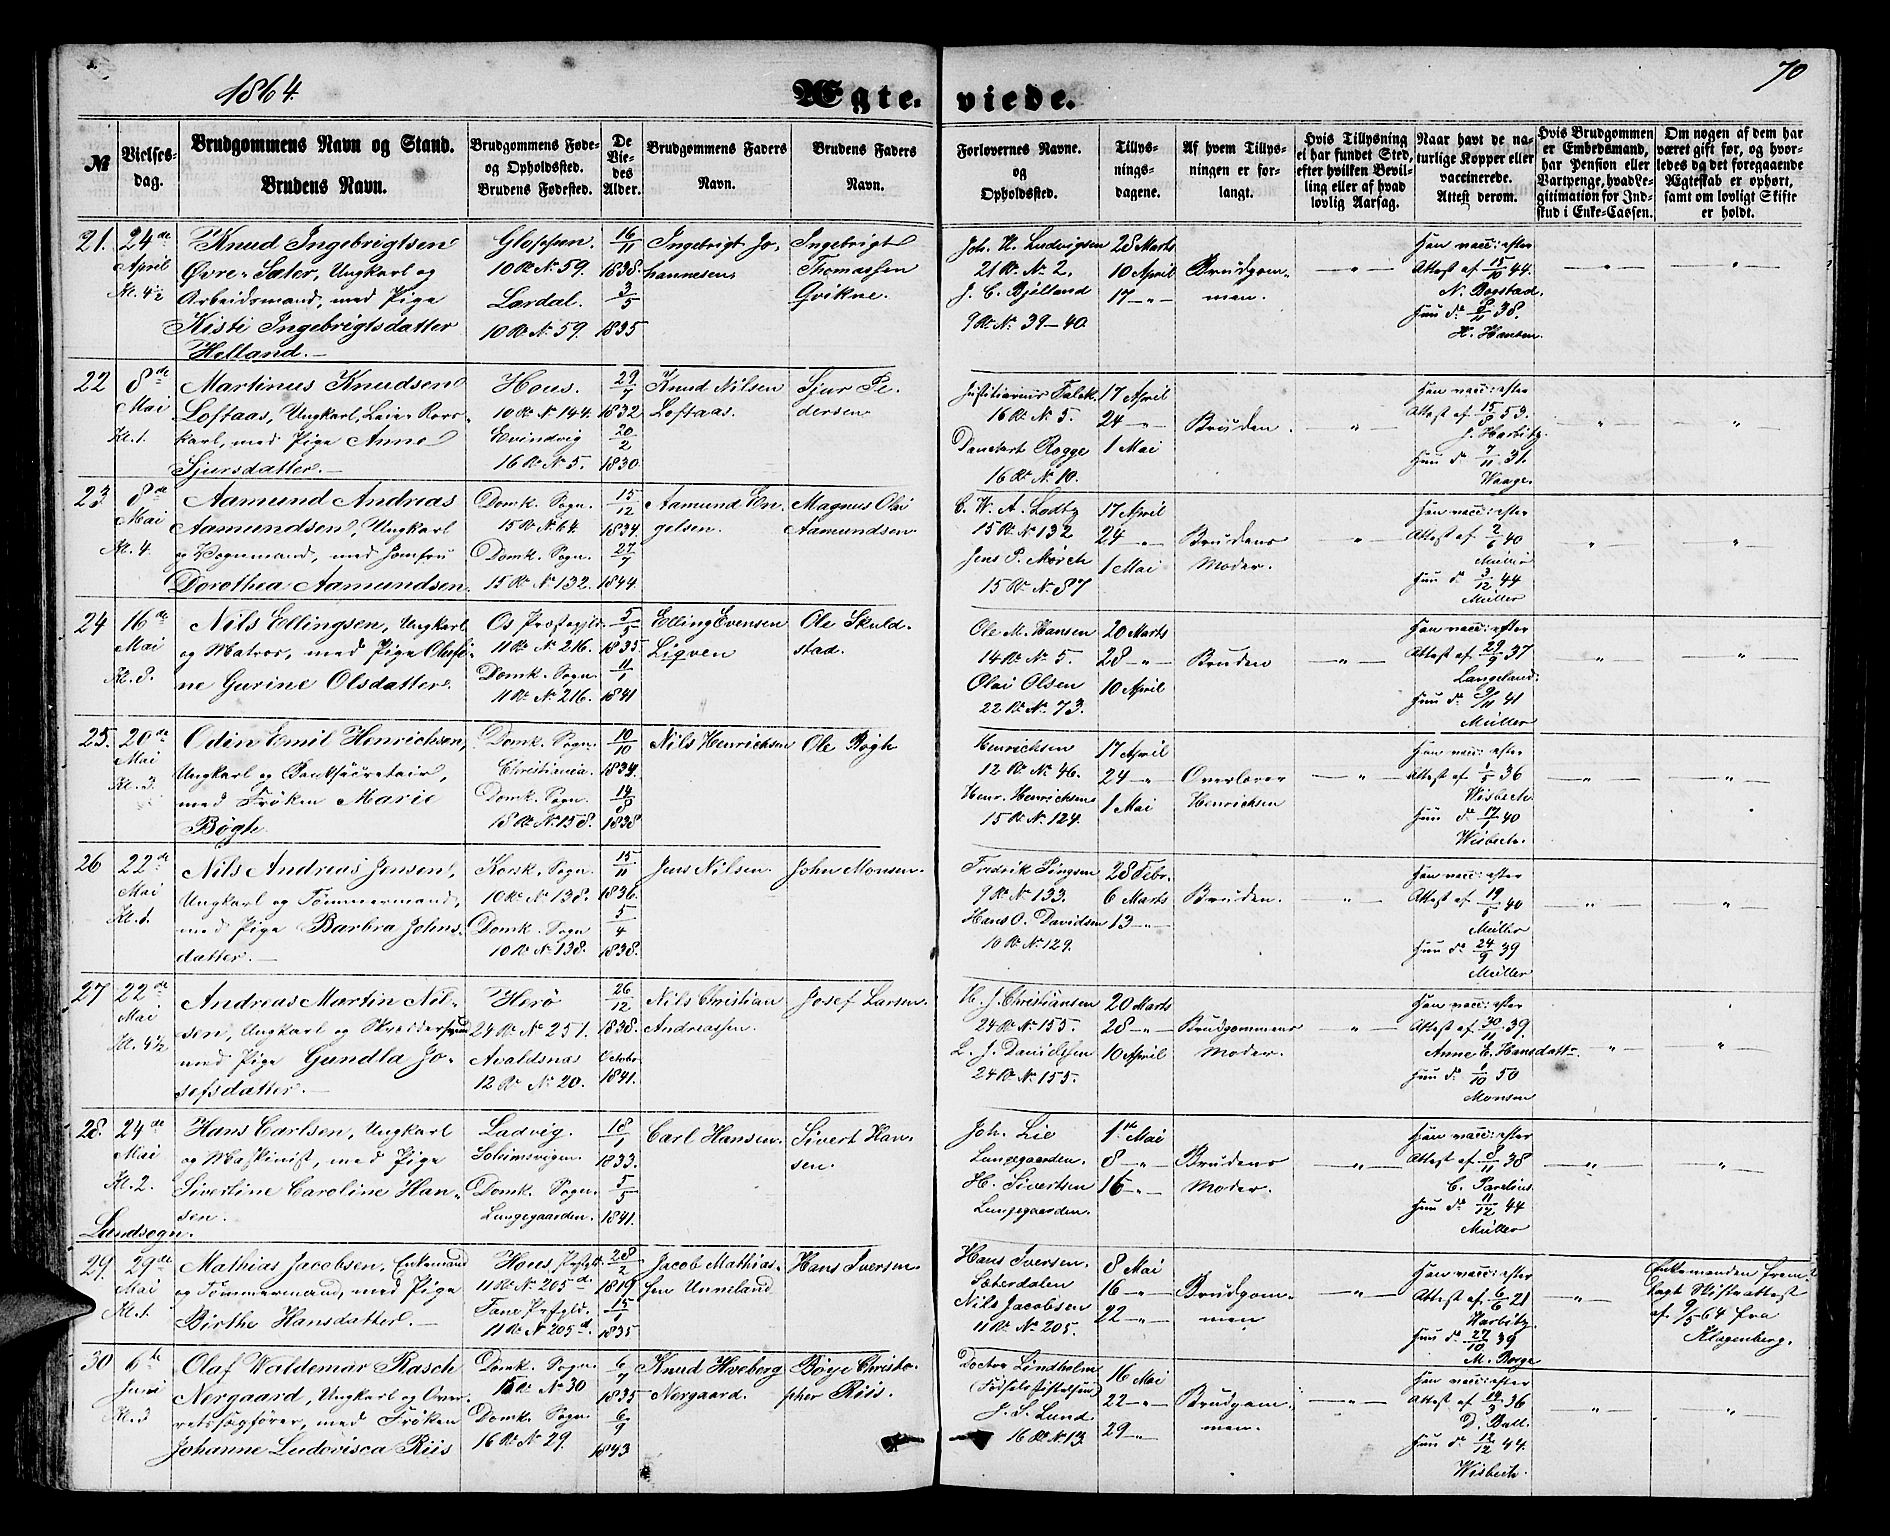 1864.
Ægte-viede.
70
№
Vielses-dag.
Brudgommens Navn og Stand.
Brudens Navn.
Brudgommens Føde- og Opholdssted.
Brudens Fødested.
De Viedes Alder.
Brudgommens Faders Navn.
Brudens Faders Navn.
Forlovernes Navne. og Opholdssted.
Tillysningsdagene.
Af hvem Tillysningen er forlangt.
Hvis Tillysning ei har fundet Sted, efter hvilken Bevilling eller af hvad lovlig Aarsag.
Naar havt de naturlige Kopper eller vaccinerede. Attest derom.
Hvis Brudgommen er Embedsmand, har Pension eller Vartpenge, hvad Legitimation for Indskud i Enke-Cassen.
Om nogen af dem har været gift før, og hvorledes da det foregaaende Ægteskab er ophørt, samt om lovligt Skifte er holdt.
21. 24de April Kl. 4½
Knud Ingebrigtsen
Øvre-Sæter, Ungkarl og
Arbeidsmand, med Pige
Kisti Ingebrigtsdatter
Helland.
Gloppen.
10 R. № 59.
Lærdal.
10 R. № 59.
16/11 1838.
3/5 1835
Ingebrigt Johannesen
Ingebrigt
Thomassen
Qvikne.
Joh. N. Ludvigsen
21 R. № 2.
J. C. Bjelland
9 R. №. 39-40.
28 Marts
10 April
17 -"-
Brudgommen.
-"-
Han vacc: efter
Attest af 15/10 44.
N. Bogstad.
Hun do 8/11 38.
H. Hansen
"
"
22 8de Mai Kl. 1.
Martinus Knudsen
Loftaas, Ungkarl, Leie-Rors-
karl, med Pige Anne
Sjursdatter.
Hous.
10 R. № 144.
Evindvig
16 R. № 5.
29/7 1832
20/2 1830
Knud Nilsen
Loftaas.
Sjur Pedersen
Justitiarius Falck.
16 R. № 5.
Danckert Rogge
16 R. № 10.
17 April
24 -"-
1 Mai
Bruden.
-"-
Han vacc: efter
Attest af 15/8 53.
J. Harbitz.
Hun do 7/11 31.
Waage.
"
"
23 8de Mai Kl. 4.
Aamund Andreas
Aamundsen, Ungkarl
og Bogmand, med Jomfru
Dorothea Aamundsen.
Domk. Sogn.
15 R. № 64.
Domk. Sogn.
15 R. № 132.
15/12 1834.
27/7 1844
Aamund Engelsen.
Magnus Olai
Aamundsen
C. W. A. Lodtz
15 R. № 132
Jens P. Mörch
15 R. № 87
17 April
24 -"-
1 Mai
Brudens
Moder.
"
Han vacc: efter
Attest af 2/6 40
Müller
Hun do 3/12 44
Müller
"
"
24 16de Mai Kl. 8.
Nils Ellingsen, Ungkarl
og Matros, med Pige Olufi-
ne Gurine Olsdatter.
Os Præstgjeld.
11 R. № 216.
Domk. Sogn.
11 R. № 216.
5/5 1835
11/1 1841
Elling Evensen
Liqven
Ole Skuldstad.
Ole M. Hansen
14 R. № 5.
Olai Olsen
22 R. № 73.
20 Marts
28 -"-
10 April
Bruden
-"-
Han vacc: efter
Attest af 29/9 37
Langeland.
Hun do 9/11 41
Müller
"
"
25. 20de Mai Kl. 3.
Odin Emil Henrichsen,
Ungkarl og Banksecretair,
med Frøken Marie
Bögh.
Domk. Sogn.
Christiania.
Domk. Sogn.
18 R. № 158.
10/10 1834.
14/8 1838
Nils Henrichsen
Ole Bögh
Henrichsen
12 R. № 46.
Henr. Henrichsen
15 R. № 124.
17 April
24 -"-
1 Mai
Overlærer
Henrichsen
-"-
Han vacc: efter
Attest af 1/5 36
Wisbech.
Hun do 17/1 40
Wisbech.
"
"
26 22de Mai Kl. 1.
Nils Andreas Jensen,
Ungkarl og Tømmermand,
med Pige Barbra Johns-
datter.
Korsk. Sogn.
10 R. № 138.
Domk. Sogn
10 R. № 138.
15/11 1836.
5/4 1838.
Jens Nilsen.
John Monsen.
Fredrik Singsen
9 R. № 133.
Hans O. Davidsen
10 R. № 129.
28 Febr.
6 Marts
13 -"-
Bruden.
-"-
Han vacc: efter
Attest af 19/5 40
Müller
Hun do 24/9 39
Müller
"
"
27 22de Mai Kl. 4½
Andreas Martin Nil-
sen, Ungkarl og Skræddersvend
med Pige Gundla Jo-
sefsdatter.
Herö
24 R. № 251.
Avaldsnæs
12 R. № 20.
26/12 1838.
Octobr. 1841.
Nils Christian
Andreassen.
Josef Larsen.
N. J. Christiansen
24 R. № 155.
L. J. Davidsen
24 R. № 155.
20 Marts
28 -"-
10 April
Brudgommens
Moder.
"
Han vacc: efter
Attest af 30/11 39.
Anne E. Hansdattr
Hun do 1/10 50
Monsen
"
"
28. 24de Mai Kl. 2.
Landsogn.
Hans Carlsen, Ungkarl
og Maskinist, med Pige
Sivertine Caroline Han-
sen.
Ladvig.
Solheimsvigen.
Domk. Sogn.
Lungegaarden.
18/1 1833.
5/5 1841.
Carl Hansen.
Sivert Hansen.
Joh. Lie
Lungegaarden.
H. Sivertsen
Lungegaarden.
1ste Mai
8 -"-
16 -"-
Brudens
Moder.
"
Han vacc: efter
Attest af 8/11 38
C. Parelius.
Hun do 11/12 44
Müller
"
"
29. 29de Mai Kl. 1.
Mathias Jacobsen, Enkemand
og Tømmermand, med Pige
Birthe Hansdatter.
Hous Præstgd.
11 R. № 205 d.
Fane Præstgld.
11 R. № 205 d.
28/2 1819
15/1 1835
Jacob Mathiassen Unneland
Hans Iversen.
Hans Iversen
Sæterdalen
Nils Jacobsen
11 R. № 205.
8 Mai
16 -"-
22 -"-
Brudgommen
-"-
Han vacc: efter
Attest af 6/6 21
Harbitz.
Hun do 27/10 39
M. Borge
"
Enkemanden frem-
lagt Skifteattest
af 9/5 64 fra
Klagenberg.
30 6te Juni Kl. 3
Olaf Waldemar Rasch
Nörgaard, Ungkarl og Over-
retssagfører, med Frøken
Johanne Ludovisca Riis
Domk. Sogn.
15 R. № 30
Domk. Sogn.
16 R. № 29.
6/7 1835
6/9 1843
Knud Hveberg
Nörgaard.
Böye Christopher Riis.
Doctor Lindholm
(Fødselsstiftelsen)
J. S. Lund.
16 R. № 13.
16 Mai
22 -"-
29 -"-
Brudgommen.
-"-
Han vacc: efter
Attest af 14/3 36
D. Bull.
Hun do 12/12 44.
Wisbech.
"
"